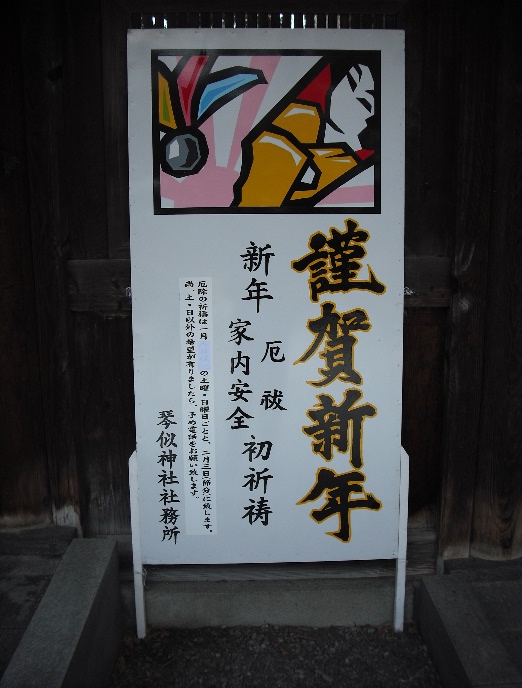 謹賀新年
新年 厄祓 家内安全 初祈祷
厄除の祈祷は一月 の土曜・日曜日ごとと、二月三日節分に致します。
尚、土・日以外の希望が有りましたら、予め電話をお願い致します。
琴似神社社務所